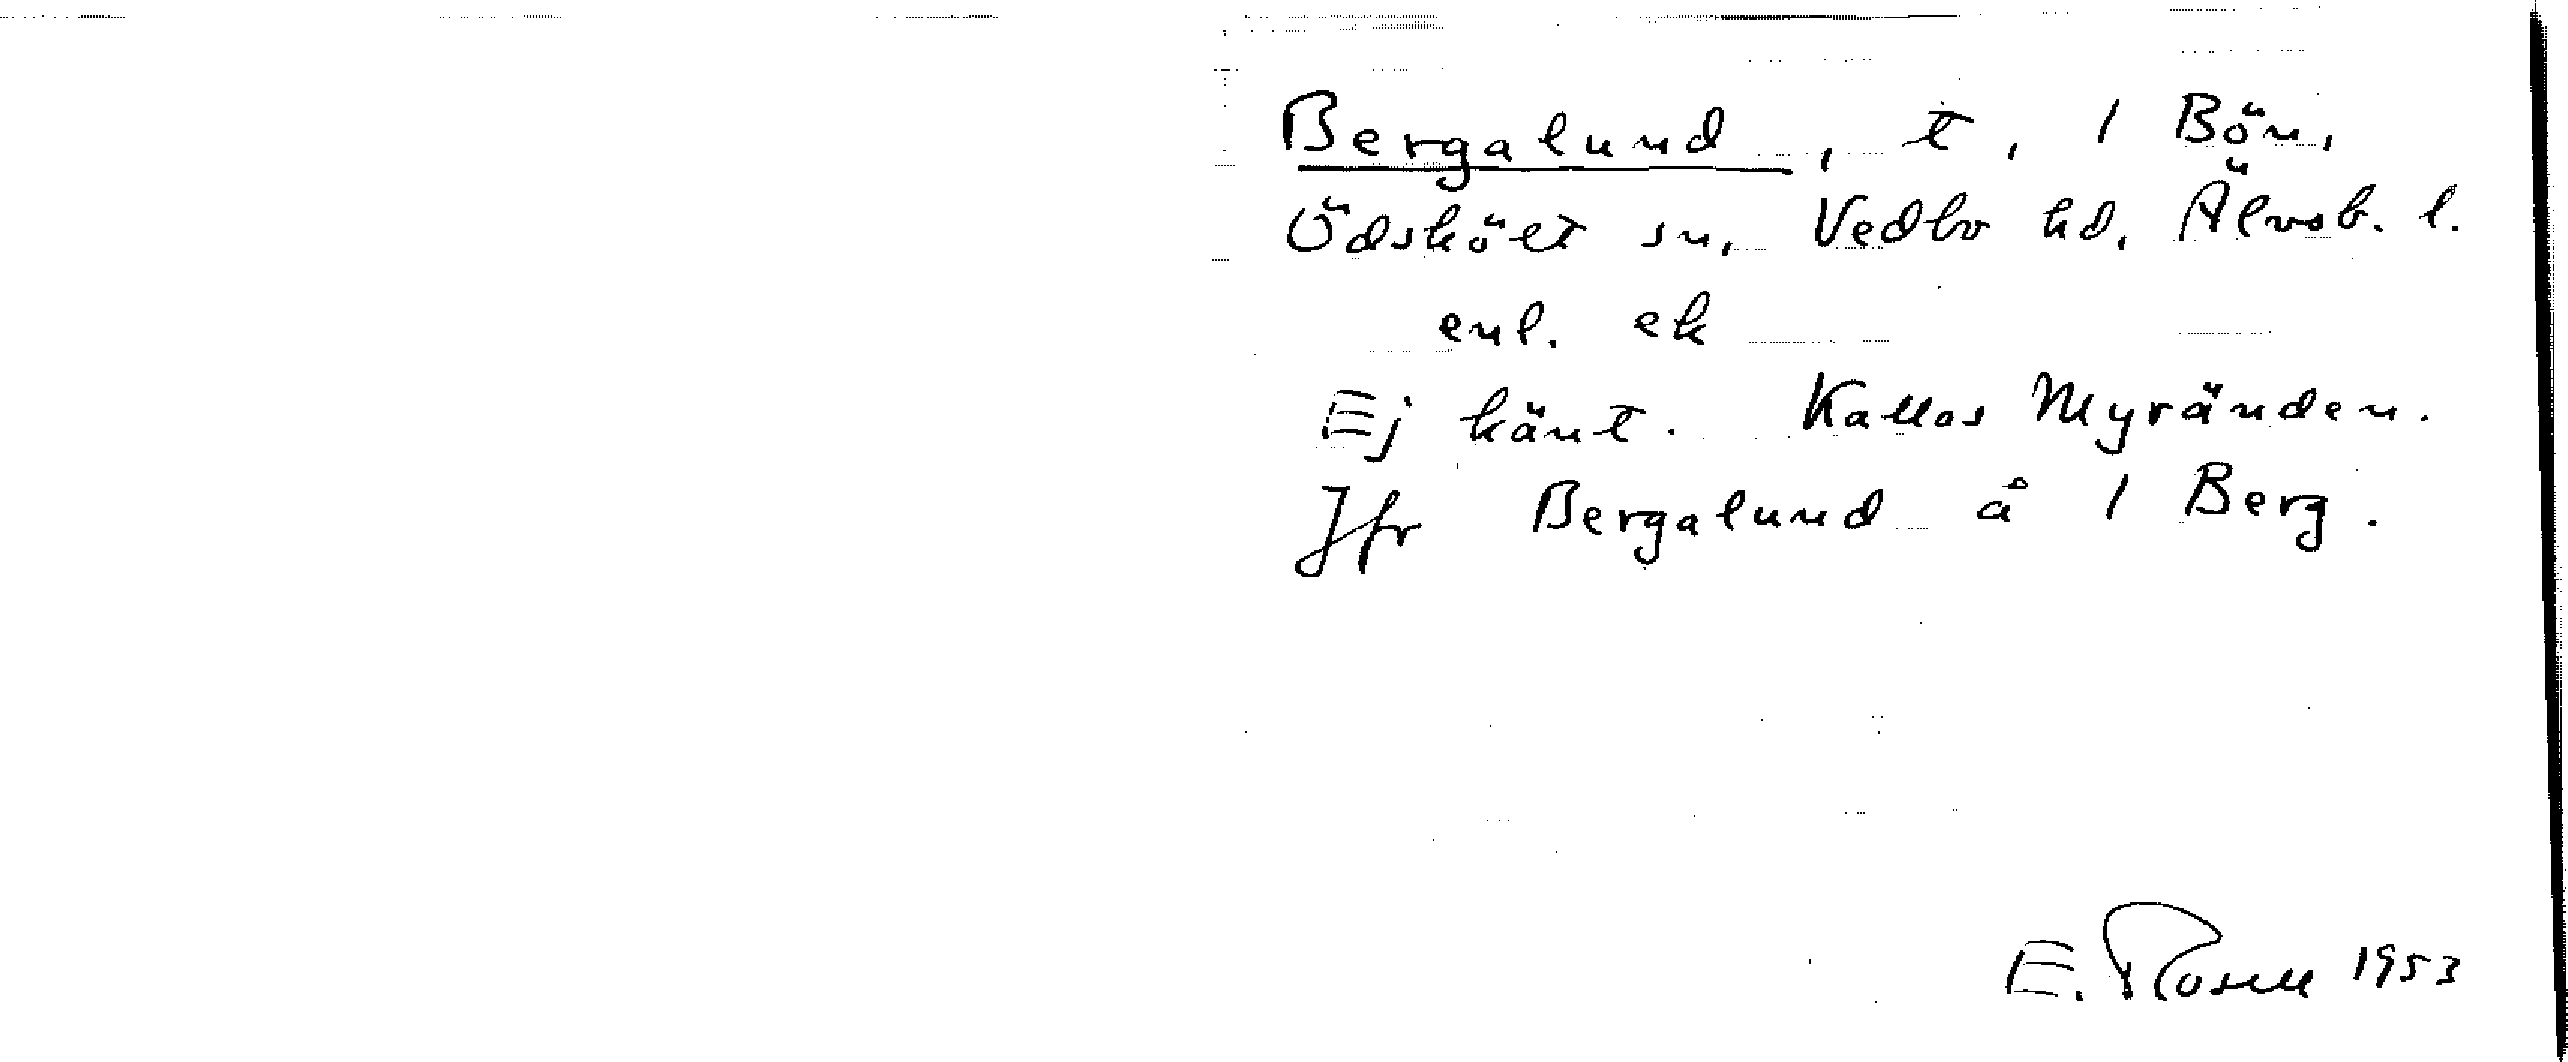 Bergalund, t, 1 Bön,
Ödskölt sn, Vedbo hd, Älvsb. l.
enl. ek
Ej känt. Kallas Myränden.
Jfr Bergalund å 1 Berg.
E. Rosell 1953